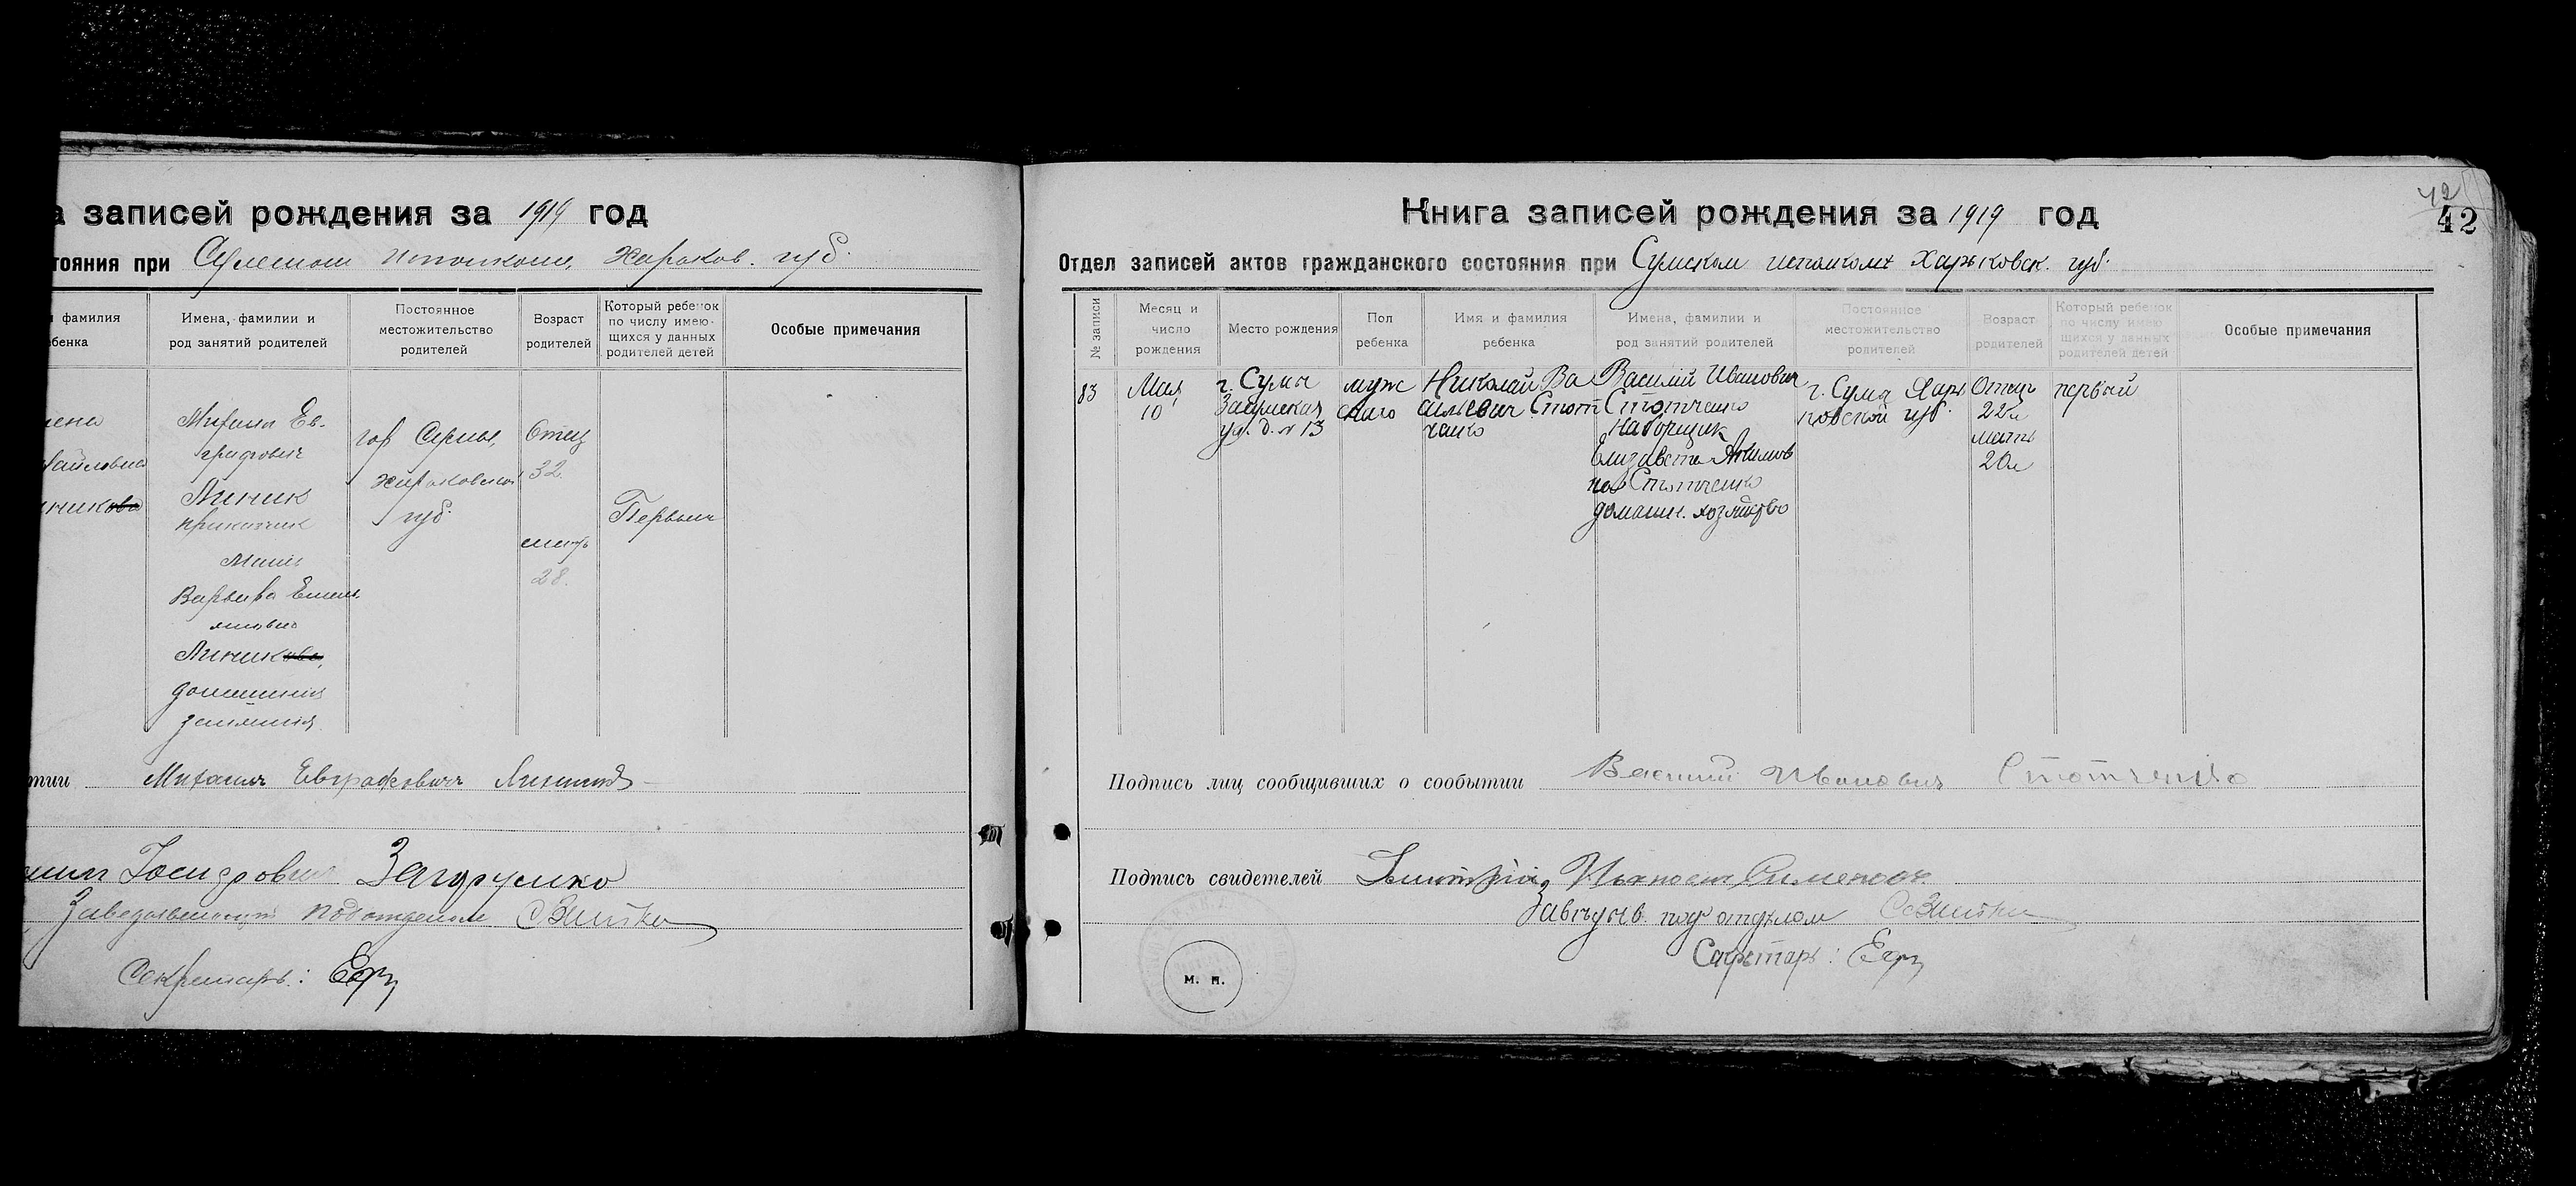 а записей рождения за 1919 год
тояния при Сумском исполкоме, Харьков. губ.
фамилия
бенка
Имена, фамилии и
род занятий родителей
Постоянное
местожительство
родителей
Возраст
родителей
Который ребенок
по числу имею-
щихся у данных
родителей детей
Особые примечания
Михаил Ев-
графович
Линик
приказчик
Мать
Варвара Емель
яновна
Линикова,
домашния
занятия
гор Сумы,
Харьковской
губ.
Отец
32.
мать
28.
Первый
тии Михаил Евграфович
Заведывающий подотделом
Секретарь:
42
Книга записей рождения за 1919 год
42
Отдел записей актов гражданского состояния при Сумском исполкоме Харьковск. губ.
№ записи
Месяц и
число
рождения
Место рождения
Пол
ребенка
Имя и фамилия
ребенка
Имена, фамилии и
род занятий родителей
Постоянное
местожительство
родителей
Возраст
родителей
Который ребенок
по числу имею
щихся у данных
родителей детей
Особые примечания
83
Мая
10
г. Сумы
Засумская
ул. д. № 13
муж
ского
Николай Ва
сильевич Стот
ченко
Василий Иванович
Стотченко
наборщик
Елизавета Акимов
на Стотченко
домашн. хозяйство
г. Сумы Харь
ковской губ.
Отец
22л
мать
20л
первый
Подпись лиц сообщивших о сообытии Василий Иванович Стотченко
Подпись свидетелей
Заведыв. подотделом
Секретарь:
м. п.